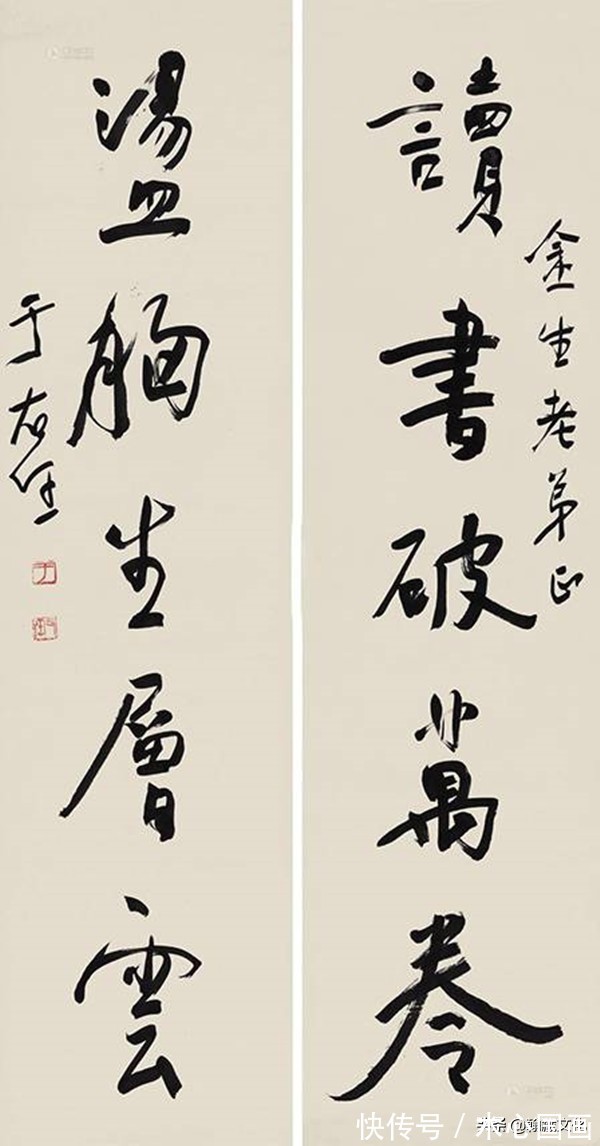 金生老弟正
讀書破萬卷
盪胸生層雲
于右任
快传号